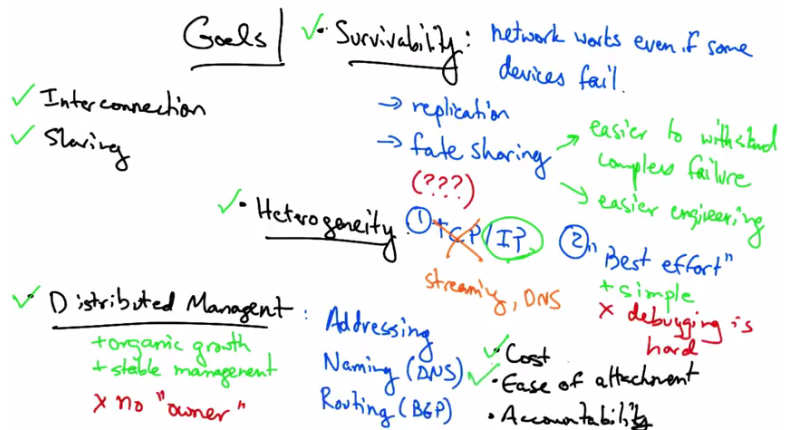 Goals
✓ • Survivability: network works even if some
devices fail.
→ replication
→ fate sharing
(???)
→ easier to withstand
complex failure
→ easier engineering
✓ Interconnection
✓ Sharing
✓ • Heterogeneity ① TCP/IP
streaming, DNS
② "Best effort"
+ simple
x debugging is
hard
✓ • Distributed Managent:
+ organic growth
+ stable management
x no "owner"
Addressing
Naming (DNS)
Routing (BGP)
✓ • Cost
✓ • Ease of attachment
• Accountability